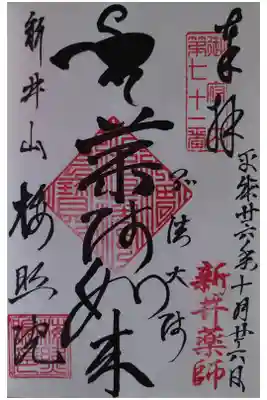 奉拝
第七十一番
平成廿六年十月廿六日
新井薬師
弘法大師
薬師如来
新井山
梅照院